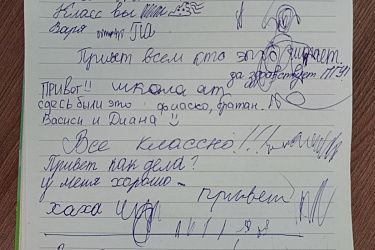 Класс вы
Варя ПА
Привет всем кто это читает.
да здравствует
ПРивот!! школа
сдесь были это фиаско, братан.
Васися и Диана
Все классно!!!
Привет как дела?
у меня хорошо
привет
хаха